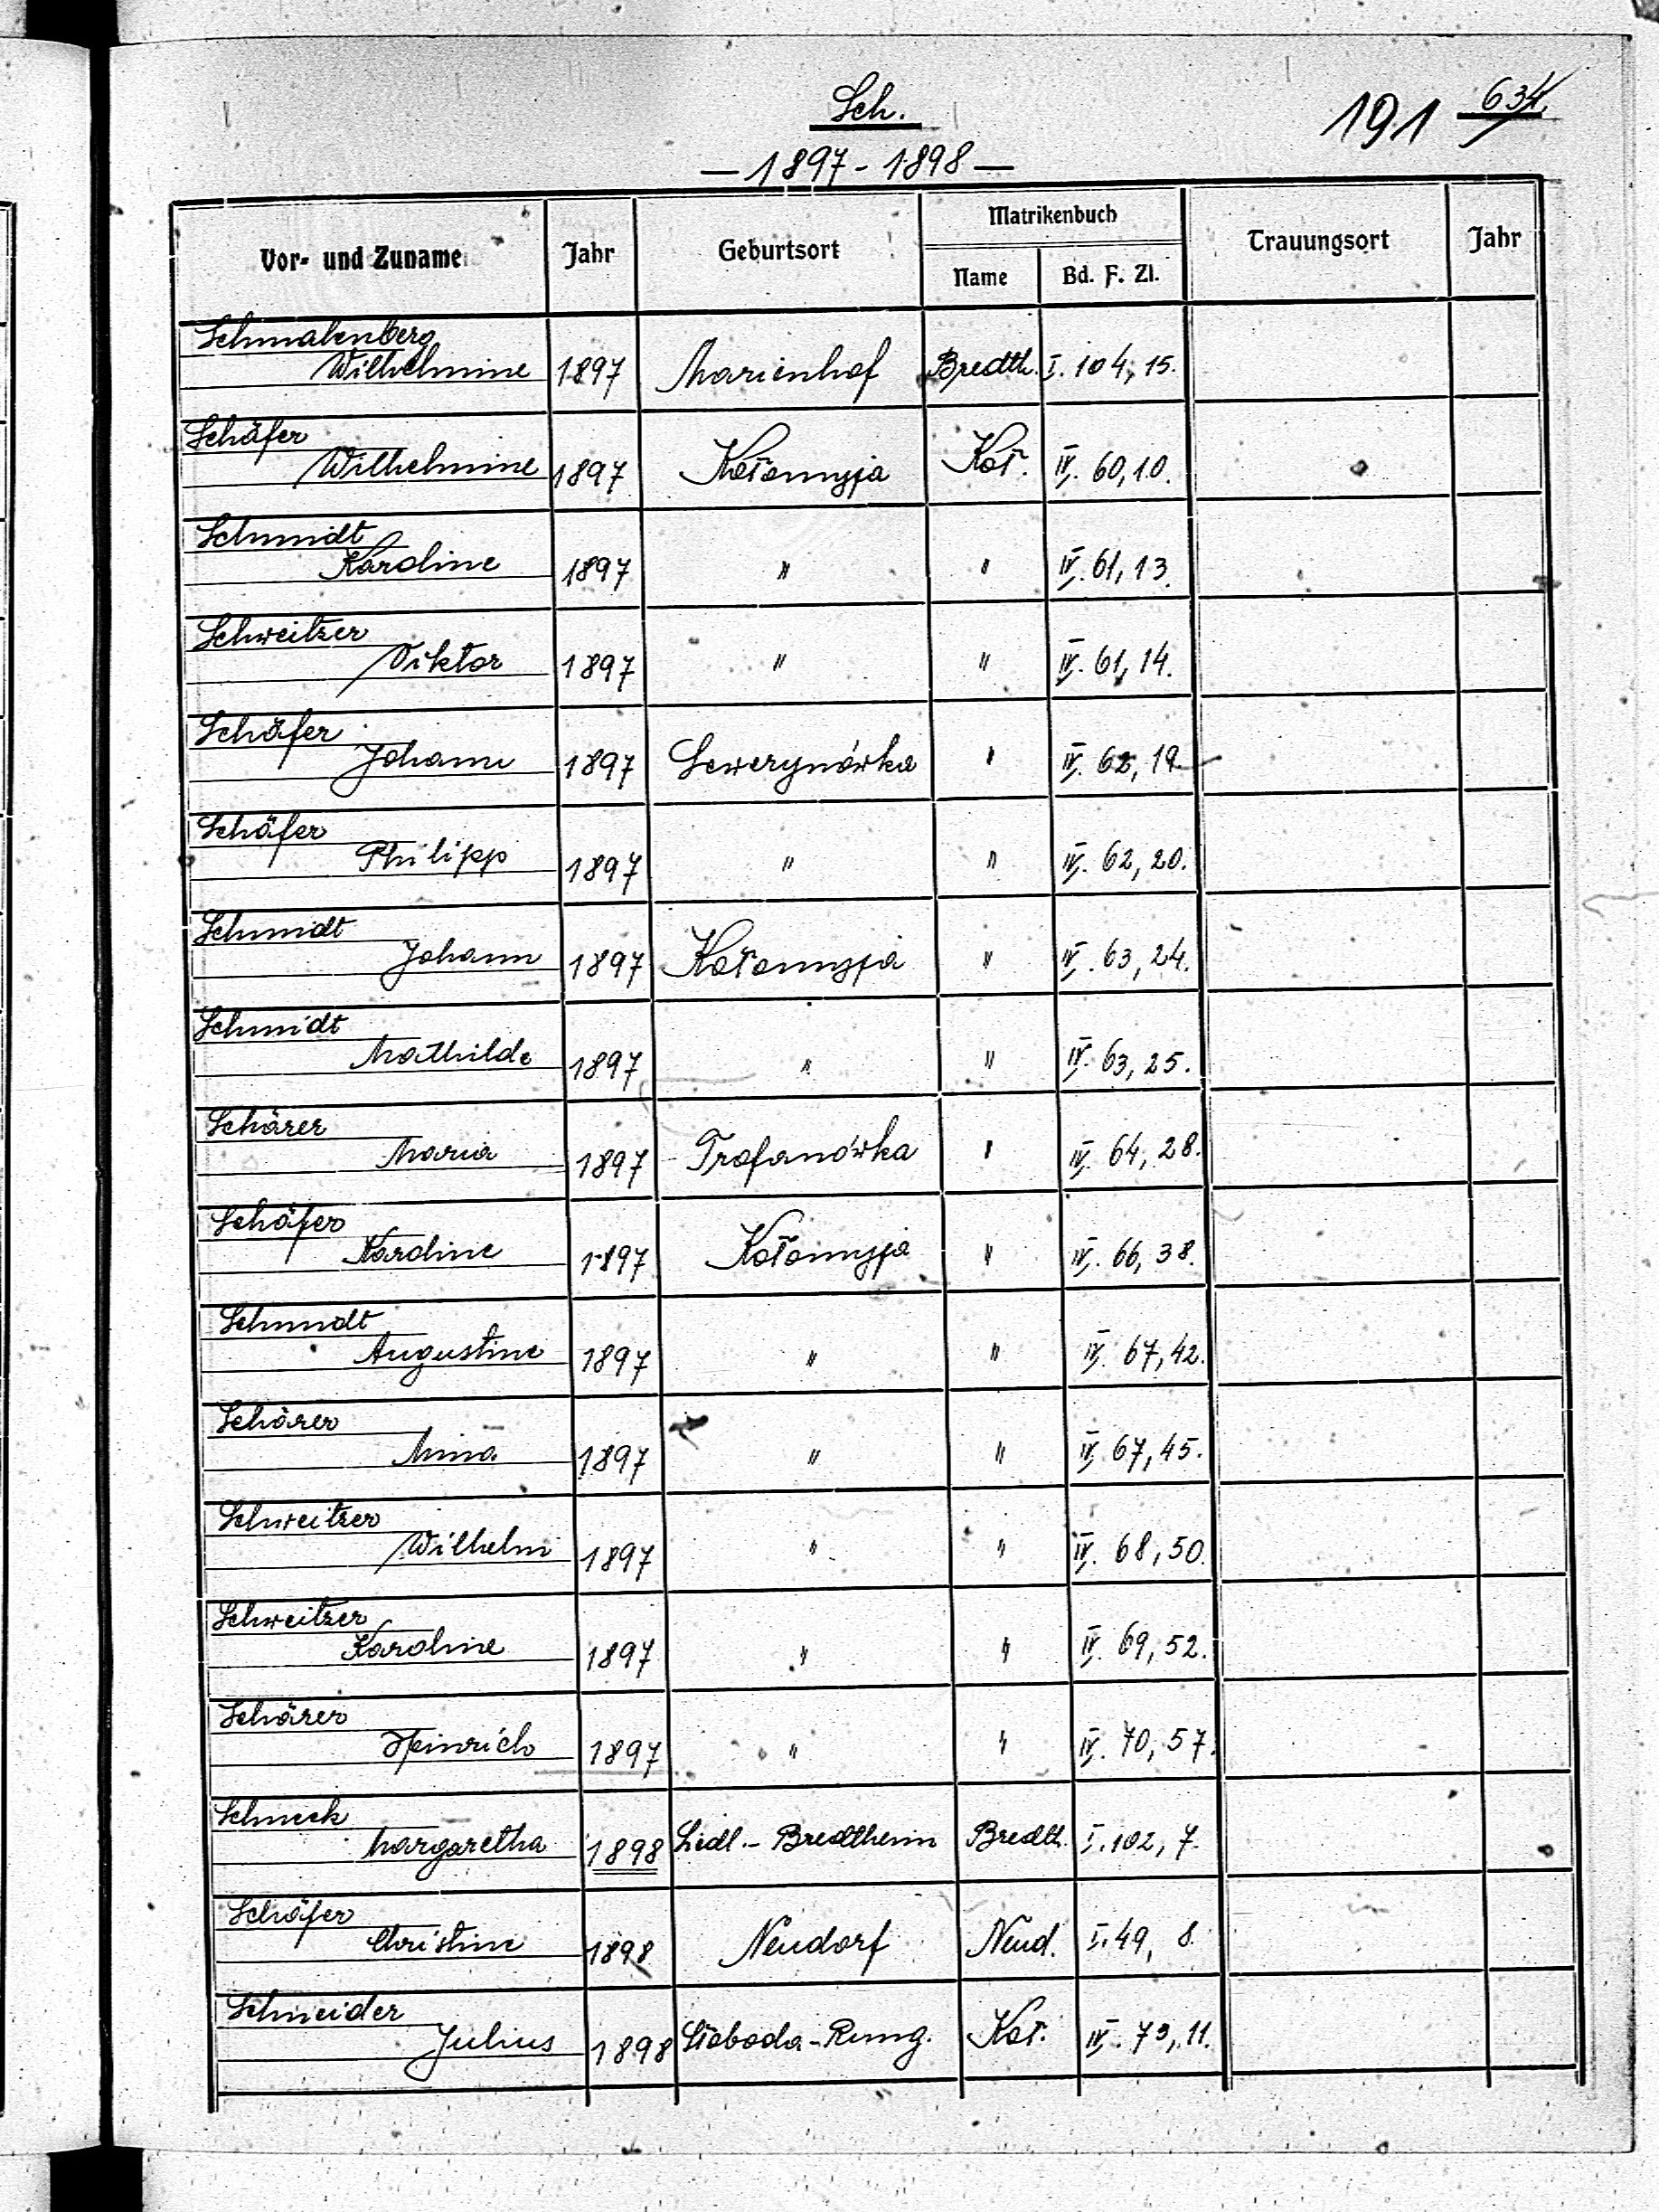 Sch.
191 634
— 1897 - 1898 —
Vor- und Zuname Jahr Geburtsort Matrikenbuch Trauungsort Jahr
Name Bd. F. Zl.
Schmalenberg
Wilhelmine 1897 Marienhof Bredth. I. 104, 15.
Schäfer
Wilhelmine 1897 Kołomyja Koł. IV. 60, 10.
Schmidt
Karoline 1897 " " IV. 61, 13.
Schweitzer
Viktor 1897 " " IV. 61, 14.
Schäfer
Johann 1897 Sewerynówka " IV. 62, 19
Schäfer
Philipp 1897 " " IV. 62, 20.
Schmidt
Johann 1897 Kołomyja " IV. 63, 24.
Schmidt
Mathilde 1897 " " IV. 63, 25.
Schärer
Maria 1897 Trofanówka " IV. 64, 28.
Schäfer
Karoline 1897 Kołomyja " IV. 66, 38.
Schmidt
Augustine 1897 " " IV. 67, 42.
Schärer
Mina 1897 " " IV. 67, 45.
Schweitzer
Wilhelm 1897 " " IV. 68, 50.
Schweitzer
Karoline 1897 " " IV. 69, 52.
Schärer
Heinrich 1897 " " IV. 70, 57.
Schneck
Margaretha 1898 Siedl.-Bredtheim Bredth. I. 102, 7.
Schäfer
Christine 1898 Neudorf Neud. I. 49, 8.
Schneider
Julius 1898 Słoboda-Rung. Koł. IV. 73, 11.